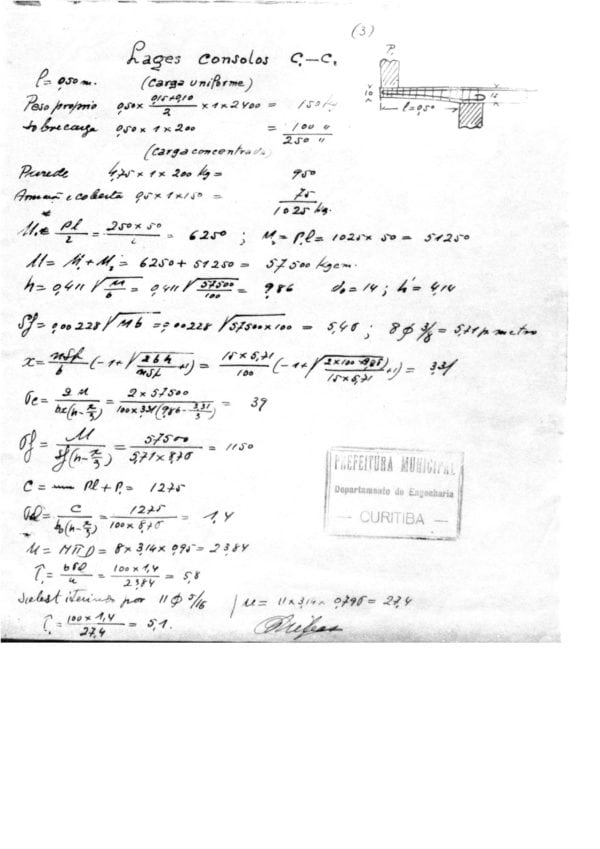 (3)
Lages consolos C₁—C₁
l = 0,50 m. (carga uniforme)
P₁
10
l=0,50
Peso proprio 0,50 × (0,15+0,10)/2 × 1 × 2400 = 150 kg
Sobrecarga 0,50 × 1 × 200 = 100 "
250 "
(carga concentrada)
Parede 4,75 × 1 × 200 kg = 950
e coberta 0,5 × 1 × 150 = 75
1025 kg.
M₁ = Pl/2 = 250×50/2 = 6250 ; M₂ = P₁l = 1025 × 50 = 51250
M = M₁ + M₂ = 6250 + 51250 = 57500 kgcm.
h = 0,411 √(M/b) = 0,411 √(57500/100) = 9,86 d₀ = 14 ; h' = 4,14
Sf = 0,00228 √(Mb) = 0,00228 √(57500×100) = 5,46 ; 8 φ 3/8 = 5,71 p metro
x = nSf/b (-1+√(2bh/nSf +1)) = 15 × 5,71/100 (-1+√(2×100×9,86/15×5,71 +1)) = 3,31
σc = 2M/bx(h-x/3) = 2 × 57500/100×3,31(9,86-3,31/3) = 39
σf = M/Sf(h-x/3) = 57500/5,71×8,76 = 1150
C = Pl + P₁ = 1275
σd = C/b(h-x/3) = 1275/100×8,76 = 1,4
u = nΠD = 8 × 3,14 × 0,95 = 23,84
τ₁ = bσd/u = 100 × 1,4/23,84 = 5,8
Substituimos por 11 φ 5/16 / u = 11 × 3,14 × 0,796 = 27,4
τ₁ = 100 × 1,4/27,4 = 5,1.
PREFEITURA MUNICIPAL
Departamento de Engenharia
— CURITIBA —